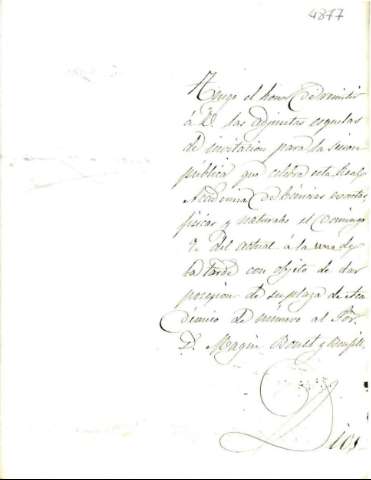 4877
Tengo el honor de remitir
á V. las adjuntas esquelas
de invitacion para la sesion
pública que celebra esta Real
Academia de Ciencias exactas
físicas y naturales el Domingo
9 del actual á la una de
la tarde con objeto de dar
posesion de su plaza de Aca
démico de número al Sor.
D. Magin Bonet y Bonfill.
Dios